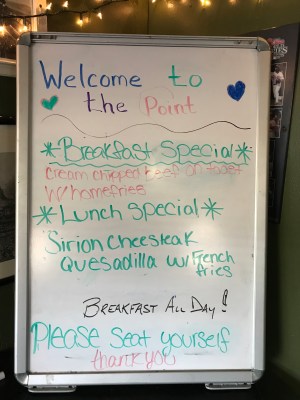 Welcome to
the Point
*Breakfast Special*
Cream chipped beef on toast
w/homefries
*Lunch Special*
Sirion Cheesteak
Quesadilla w/French
fries
Breakfast All Day!
Please Seat yourself
thank you